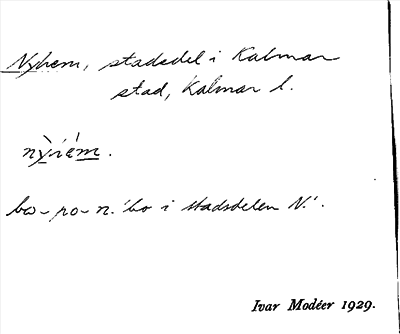 Nyhem, stadsdel i Kalmar
stad, Kalmar l.
bo - po - n. 'bo i stadsdelen N.'.
Ivar Modéer 1929.